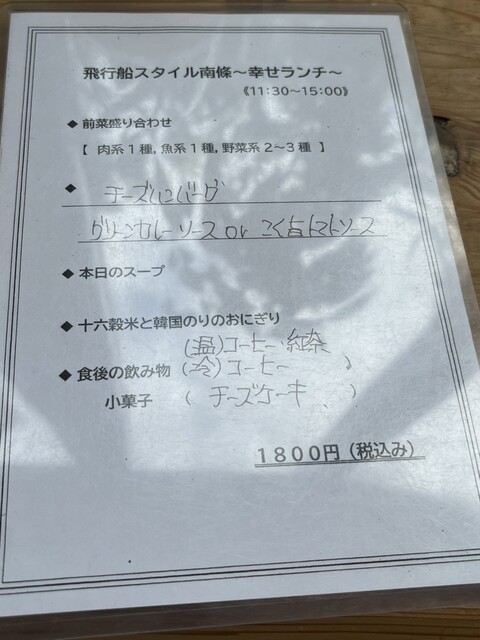 飛行船スタイル南條～幸せランチ～
《11:30～15:00》
◆ 前菜盛り合わせ
【 肉系１種, 魚系１種, 野菜系２～３種 】
◆ チーズハンバーグ
グリーンカレーソース or こく旨トマトソース
◆ 本日のスープ
◆ 十六穀米と韓国のりのおにぎり
(温)コーヒー・紅茶
◆ 食後の飲み物 (冷)コーヒー )
小菓子 ( チーズケーキ )
１８００円（税込み）